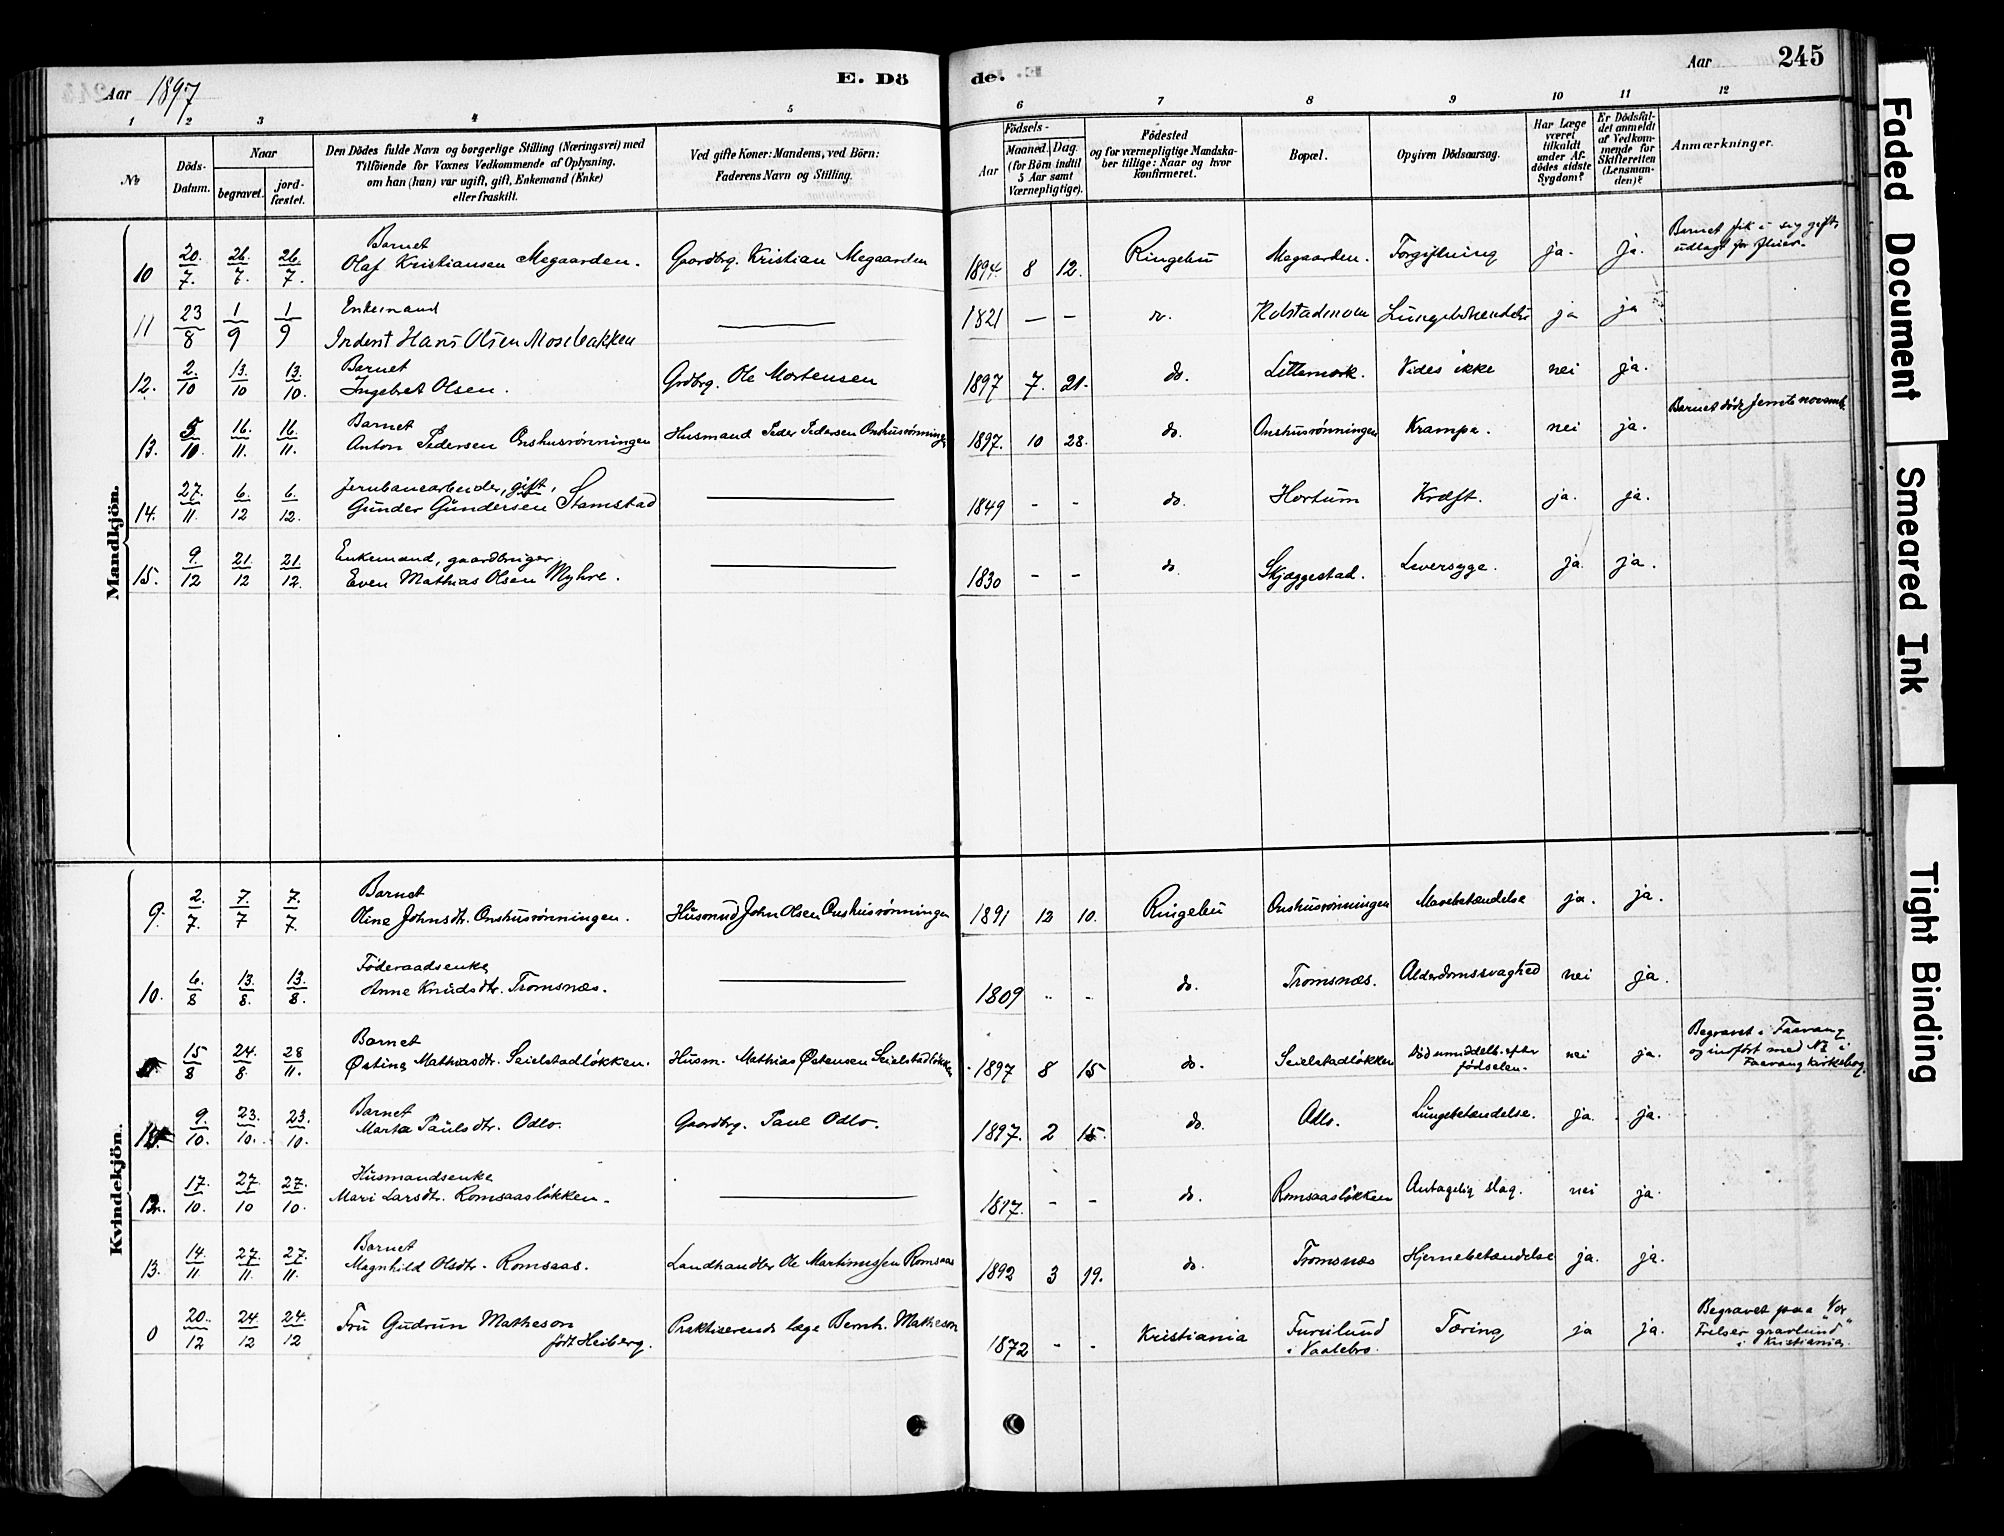 Aar 1897
E. Dö
de.
Aar
245
1 2 3 4 5 6 7 8 9 10 11 12
№
Döds-Datum.
Naar
begravet.
jord-fæstet.
Den Dödes fulde Navn og borgerlige Stilling (Næringsvei) med
Tilföiende for Voxnes Vedkommende af Oplysning,
om han (hun) var ugift, gift, Enkemand (Enke)
eller fraskilt.
Ved gifte Koner: Mandens, ved Börn:
Faderens Navn og Stilling.
Födsels-
Aar
Maaned. Dag.
(for Börn indtil
5 Aar samt
Værnepligtige).
Födested
og for værnepligtige Mandska-
ber tillige: Naar og hvor
konfirmeret.
Bopæl.
Opgiven Dödsaarsag.
Har Læge
været
tilkaldt
under Af-
dödes sidste
Sygdom?
Er Dödsfal-
det anmeldt
af Vedkom-
mende for
Skifteretten
(Lensman-
den)?
Anmærkninger.
Mandkjön.
10 20./7. 26./7. 26./7. Barnet
Olaf Kristiansen Megaarden. Gaardbrg. Kristian Megaarden 1894. 8 12. Ringebu Megaarden. Forgiftning ja. ja. Barnet fik i sig gift,
udlagt for fluer.
11 23/8 1/9 1/9 Enkemand
Inderst Hans Olsen Mosebakken 1821 — – do. Kolstadmoen ja ja
12. 2./10 13./10 13./10. Barnet
Ingebret Olsen. Grdbrg. Ole Mortensen 1897 7. 21. do. Vides ikke nei ja.
13. 5/10 16./11. 16./11. Barnet
Anton Pedersen Onshusrønningen Husmand Peder Pedersen Onshusrønningen 1897. 10 28. do. Onshusrønningen Krampe. nei ja. Barnet døde femte novemb.
14. 27./11. 6./12 6./12. Jernbanearbeider, gift,
Gunder Gundersen Stamstad 1849 - - do. Hortum Kræft. ja. ja.
15. 9./12 21./12 21./12. Enkemand, gaardbruger
Even Mathias Olsen Myhre. 1830 - - do. Skjæggestad. Leversyge. ja. ja.
Kvindekjön.
9. 2./7. 7./7 7./7. Barnet
Oline Johnsdtr. Onshusrønningen. Husmnd John Olsen Onshusrønningen 1891 12 10. Ringebu Onshusrønningen Mavebetændelse ja. ja.
10. 6./8 13./8. 13./8. Føderaadsenke
Anne Knudsdtr. Tromsnæs. 1809 - - do. Tromsnæs. Alderdomssvaghed nei ja.
15/8 24./8. 28/11. Barnet
Østine Mathiasdtr. Seielstadløkken. Husm. Mathias Østensen Seielstadløkken 1897 8 15 do. Seielstadløkken Død umiddelb. efter
fødselen. nei ja. Begravet i Faavang
og indført med № i
Faavang kirkebog.
9./10. 23./10. 23./10. Barnet
Marta Paulsdtr. Odlo. Gaardbrg. Paul Odlo. 1897. 2 15. do. Odlo. Lungebetændelse. ja. ja.
12. 17./10. 27./10 27./10. Husmandsenke
Mari Larsdtr. Romsaasløkken. 1817. - - do. Romsaasløkken Antagelig slag. nei ja.
13. 14./11. 27./11. 27./11. Barnet
Magnhild Olsdtr. Romsaas. Landhandler Ole Martinussen Romsaas 1892 3 19. do. Tromsnæs Hjernebetændelse ja. ja.
0 20./12 24./12 24./12 Fru Gudrun Matheson
født Heiberg. Praktiserende læge Bernh. Matheson 1872 - - Kristiania Furulund
i Vaalebro. Tæring ja ja. Begravet paa "Vor
Frelser gravlund"
i Kristiania.
Faded Document
Smeared Ink
Tight Binding